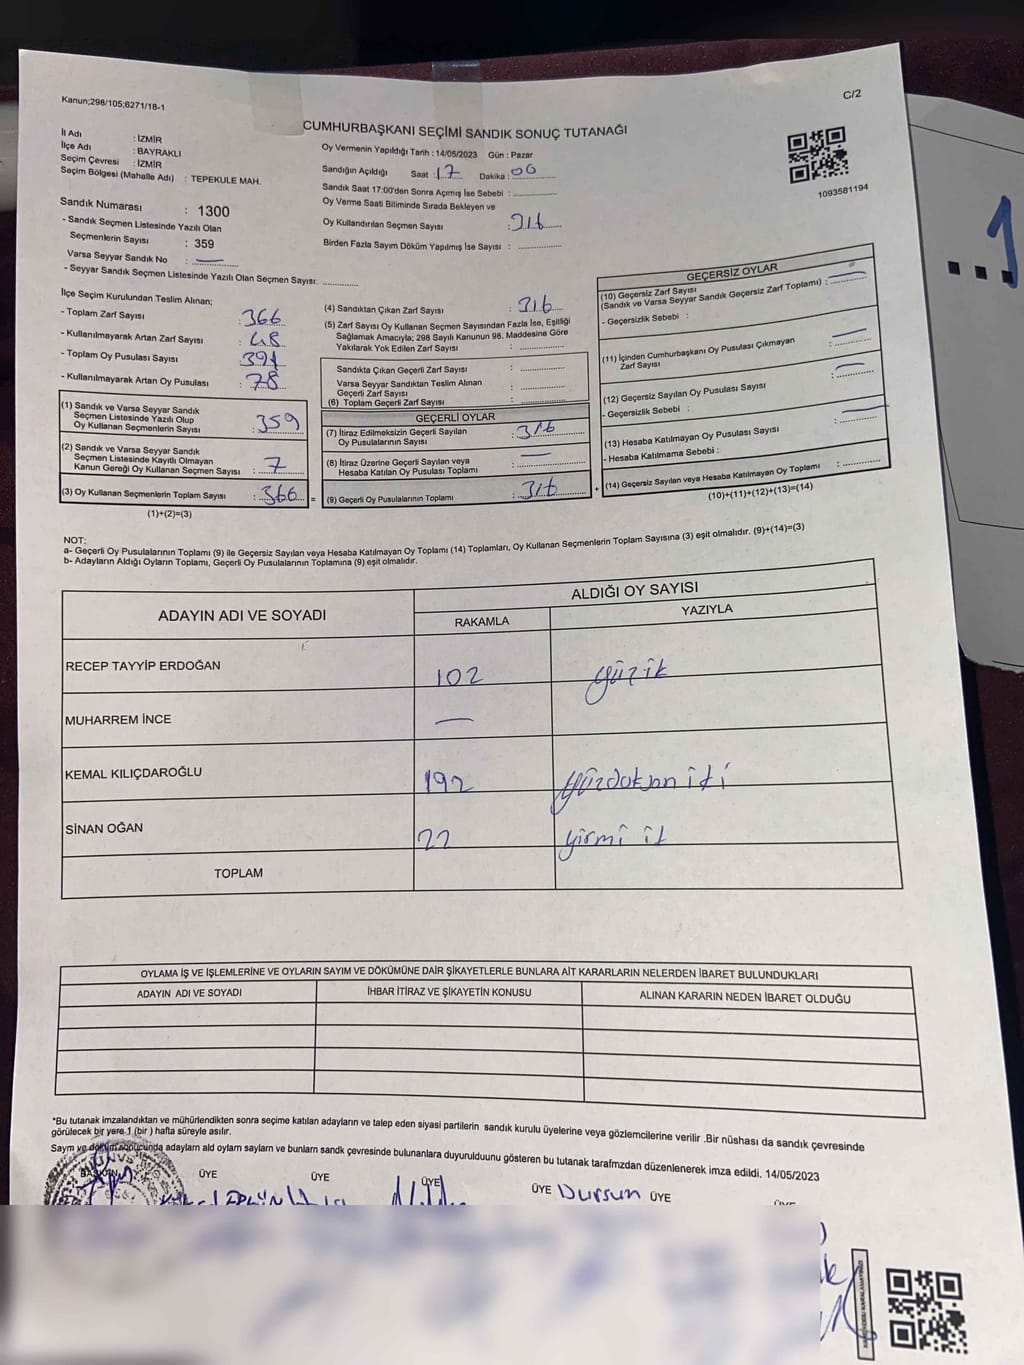 Kanun;298/105;6271/18-1
C/2
CUMHURBAŞKANI SEÇİMİ SANDIK SONUÇ TUTANAĞI
İl Adı : İZMİR
İlçe Adı : BAYRAKLI
Seçim Çevresi : İZMİR
Seçim Bölgesi (Mahalle Adı) : TEPEKULE MAH.
Oy Vermenin Yapıldığı Tarih : 14/05/2023 Gün : Pazar
Sandığın Açıldığı Saat : 17 Dakika : 00
Sandık Saat 17:00'den Sonra Açımış İse Sebebi : ..............
Oy Verme Saati Bitiminde Sırada Bekleyen ve
Oy Kullandırılan Seçmen Sayısı : 316
Birden Fazla Sayım Döküm Yapılmış İse Sayısı : ..............
1093581194
Sandık Numarası : 1300
- Sandık Seçmen Listesinde Yazılı Olan
Seçmenlerin Sayısı : 359
Varsa Seyyar Sandık No : —
- Seyyar Sandık Seçmen Listesinde Yazılı Olan Seçmen Sayısı: ..............
İlçe Seçim Kurulundan Teslim Alınan;
- Toplam Zarf Sayısı : 366
- Kullanılmayarak Artan Zarf Sayısı : 48
- Toplam Oy Pusulası Sayısı : 394
- Kullanılmayarak Artan Oy Pusulası : 78
(1) Sandık ve Varsa Seyyar Sandık
Seçmen Listesinde Yazılı Olup
Oy Kullanan Seçmenlerin Sayısı : 359
(2) Sandık ve Varsa Seyyar Sandık
Seçmen Listesinde Kayıtlı Olmayan
Kanun Gereği Oy Kullanan Seçmen Sayısı : 7
(3) Oy Kullanan Seçmenlerin Toplam Sayısı : 366 =
(1)+(2)=(3)
(4) Sandıktan Çıkan Zarf Sayısı : 316
(5) Zarf Sayısı Oy Kullanan Seçmen Sayısından Fazla İse, Eşitliği
Sağlamak Amacıyla; 298 Sayılı Kanunun 98. Maddesine Göre
Yakılarak Yok Edilen Zarf Sayısı : ..............
Sandıkta Çıkan Geçerli Zarf Sayısı : ..............
Varsa Seyyar Sandıktan Teslim Alınan
Geçerli Zarf Sayısı : ..............
(6) Toplam Geçerli Zarf Sayısı : ..............
GEÇERLİ OYLAR
(7) İtiraz Edilmeksizin Geçerli Sayılan
Oy Pusulalarının Sayısı : 316
(8) İtiraz Üzerine Geçerli Sayılan veya
Hesaba Katılan Oy Pusulası Toplamı : —
(9) Geçerli Oy Pusulalarının Toplamı : 316 +
GEÇERSİZ OYLAR
(10) Geçersiz Zarf Sayısı
(Sandık ve Varsa Seyyar Sandık Geçersiz Zarf Toplamı) : —
- Geçersizlik Sebebi :
(11) İçinden Cumhurbaşkanı Oy Pusulası Çıkmayan
Zarf Sayısı : —
(12) Geçersiz Sayılan Oy Pusulası Sayısı : —
- Geçersizlik Sebebi :
(13) Hesaba Katılmayan Oy Pusulası Sayısı : —
- Hesaba Katılmama Sebebi :
(14) Geçersiz Sayılan veya Hesaba Katılmayan Oy Toplamı : ..............
(10)+(11)+(12)+(13)=(14)
NOT:
a- Geçerli Oy Pusulalarının Toplamı (9) ile Geçersiz Sayılan veya Hesaba Katılmayan Oy Toplamı (14) Toplamları, Oy Kullanan Seçmenlerin Toplam Sayısına (3) eşit olmalıdır. (9)+(14)=(3)
b- Adayların Aldığı Oyların Toplamı, Geçerli Oy Pusulalarının Toplamına (9) eşit olmalıdır.
ADAYIN ADI VE SOYADI
ALDIĞI OY SAYISI
RAKAMLA YAZIYLA
RECEP TAYYİP ERDOĞAN 102 yüzik
MUHARREM İNCE —
KEMAL KILIÇDAROĞLU 192 yüzdoksan iki
SİNAN OĞAN 22 yirmi i
TOPLAM
OYLAMA İŞ VE İŞLEMLERİNE VE OYLARIN SAYIM VE DÖKÜMÜNE DAİR ŞİKAYETLERLE BUNLARA AİT KARARLARIN NELERDEN İBARET BULUNDUKLARI
ADAYIN ADI VE SOYADI İHBAR İTİRAZ VE ŞİKAYETİN KONUSU ALINAN KARARIN NEDEN İBARET OLDUĞU
*Bu tutanak imzalandıktan ve mühürlendikten sonra seçime katılan adayların ve talep eden siyasi partilerin sandık kurulu üyelerine veya gözlemcilerine verilir .Bir nüshası da sandık çevresinde
görülecek bir yere 1 (bir ) hafta süreyle asılır.
Sayım ve döküm sonucunda adayları ald oylam saylarn ve bunlarn sandk çevresinde bulunanlara duyurulduunu gösteren bu tutanak tarafmzdan düzenlenerek imza edildi. 14/05/2023
BAŞKAN ÜYE ÜYE ÜYE ÜYE Dursun ÜYE